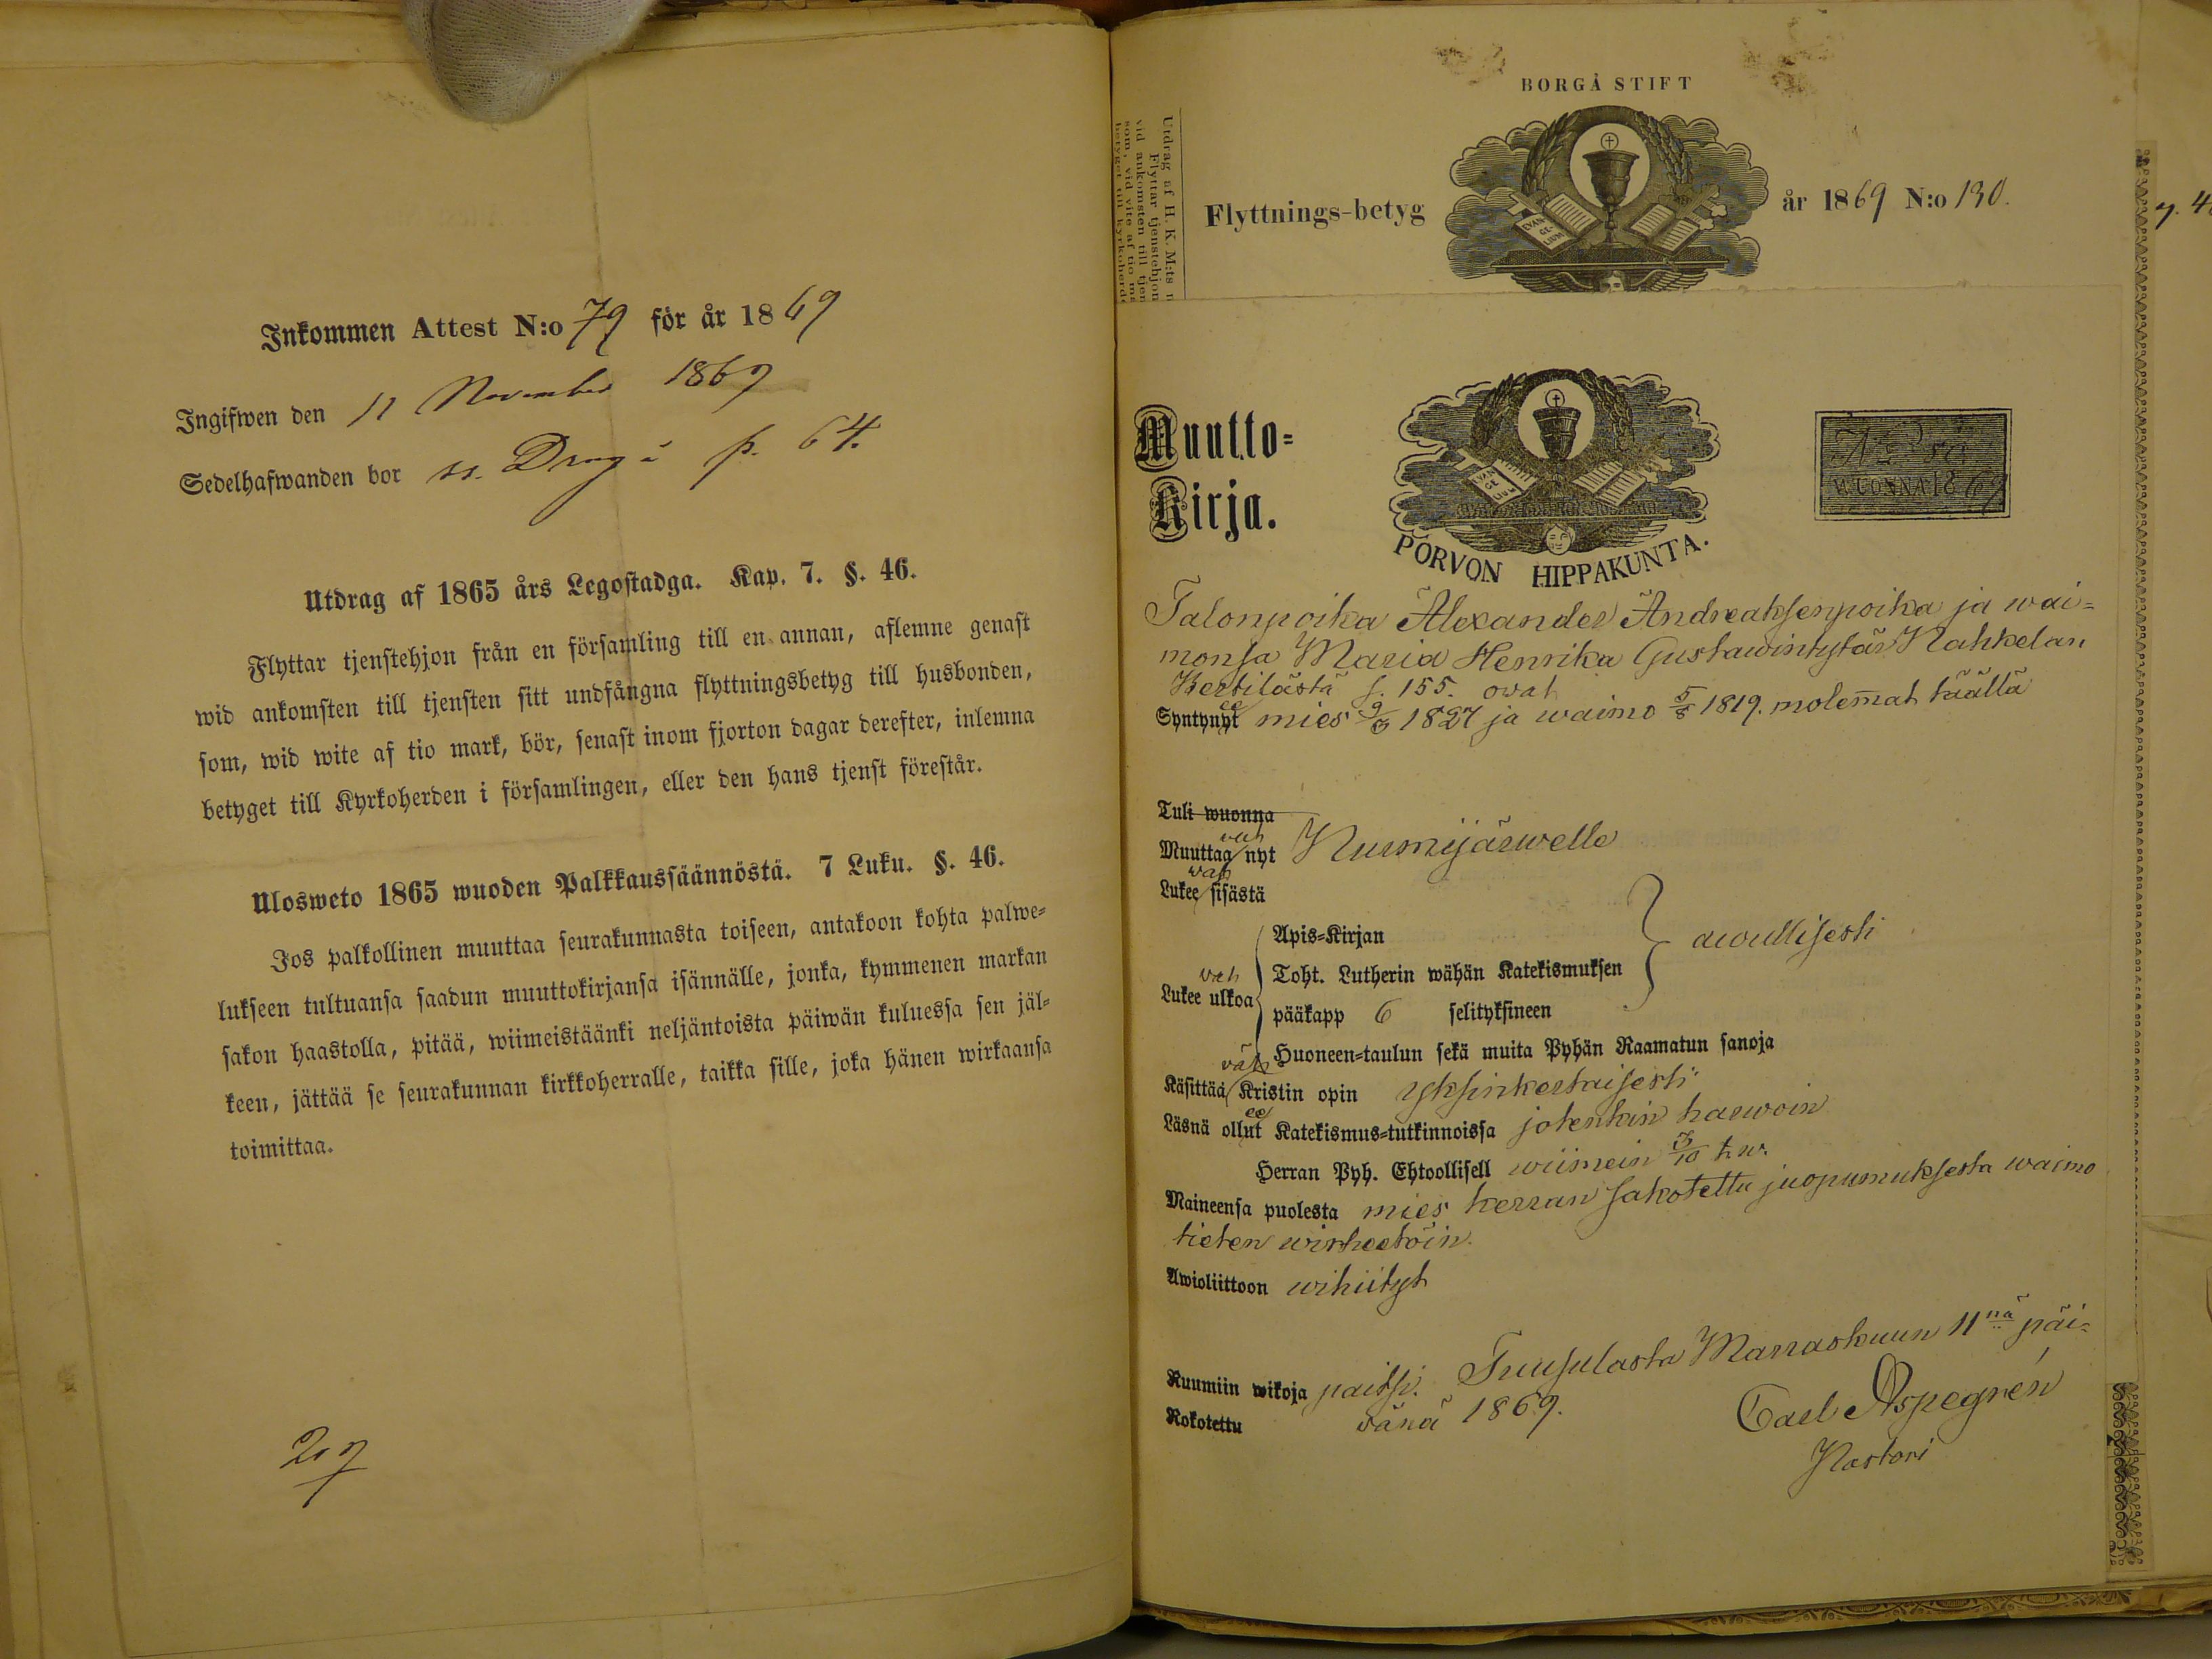 Inkommen Attest N:o 79 för år 1869
Ingifwen den 11 November 1869
Sedelhafwanden bor p. 64.
Utdrag af 1865 års Legostadga. Kap. 7. §. 46.
Flyttar tjenstehjon från en församling till en annan, aflemne genast
wid ankomsten till tjensten sitt undfångna flyttningsbetyg till husbonden,
som, wid wite af tio mark, bör, senast inom fjorton dagar derefter, inlemna
betyget till Kyrkoherden i församlingen, eller den hans tjenst förestår.
Ulosweto 1865 wuoden Palkkaussäännöstä. 7 Luku. §. 46.
Jos palkollinen muuttaa seurakunnasta toiseen, antakoon kohta palwe=
lukseen tultuansa saadun muuttokirjansa isännälle, jonka, kymmenen markan
sakon haastolla, pitää, wiimeistäänki neljäntoista päiwän kuluessa sen jäl=
keen, jättää se seurakunnan kirkkoherralle, taikka sille, joka hänen wirkaansa
toimittaa.
BORGÅ STIFT
Utdrag af H. K. M:ts
Flyttar tjenstehjon
vid ankomsten till tjen
som, vid vite af tio
betyget till kyrkoherd
Flyttnings-betyg år 1869 N:o 130.
EVAN-
GE-
LIUM
Muutto=
Kirja.
EVAN
GE
LIUM
WUONNA 1869
PORVON HIPPAKUNTA.
Talonpoika Alexander Andreaksenpoika ja wai=
monsa Maria Henrika Gustawintytär Nahkelan
Bertilästä s. 155. owat
Syntynyt mies 1827 ja waimo 5/8 1819. molemat täällä
Tuli wuonna
Muuttaa wat nyt Nurmijärwelle
Lukee wat sisästä
Lukee wat ulkoa
Apis=Kirjan
Toht. Lutherin wähän Katekismuksen
pääkapp 6 selityksineen
awullisesti
Huoneen=taulun sekä muita Pyhän Raamatun sanoja
Käsittää wät Kristin opin yksinkertaisesti
Läsnä ollut ee Katekismus=tutkinnoissa jotenkin harwoin
Herran Pyh. Ehtoollisell wiimein 3/10 t. w.
Maineensa puolesta mies kerran sakotettu juopumuksesta waimo
tieten wirheetöin.
Awioliittoon wihityt
Ruumiin wikoja paitsi. Tuusulasta Marraskuun 11nä päi=
Rokotettu wänä 1869.
Carl Aspegrén
Pastori